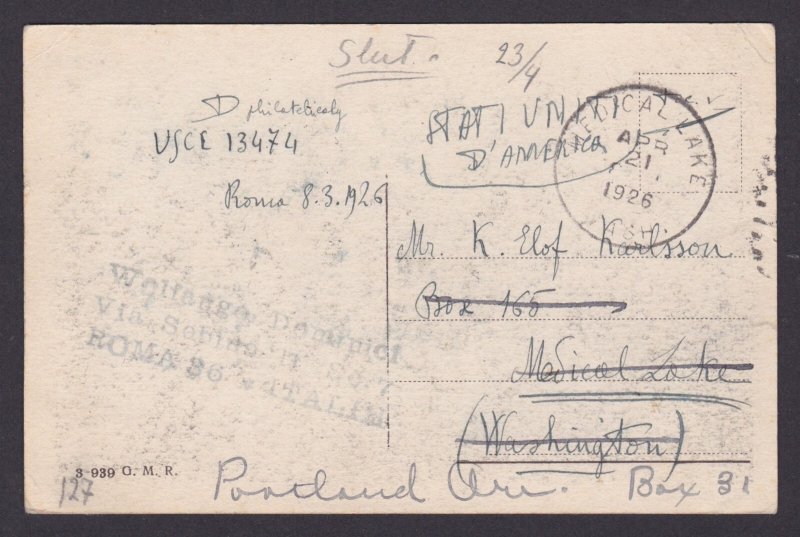 Slut.
23/4
D philatelicaly
USCE 13474
Roma 8.3.1926
STATI UNITI
D'AMERICA
MEDICAL LAKE
APR
21
1926
WASH.
Mr. K. Elof Karlsson
Box 165
Medical Lake
(Washington)
Portland Ore. Box 31
Via
No. 7
ROMA 36 - ITALIA
3 939 G. M. R.
127